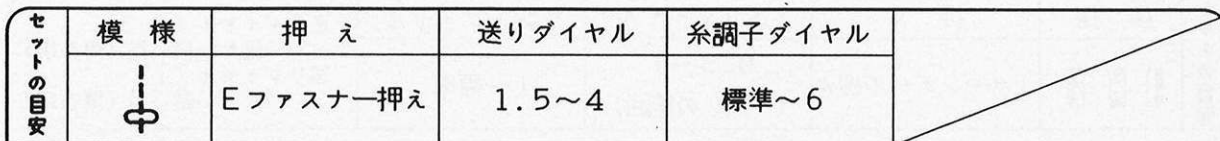 セットの目安
模様 押え 送りダイヤル 糸調子ダイヤル
Eファスナー押え 1.5～4 標準～6